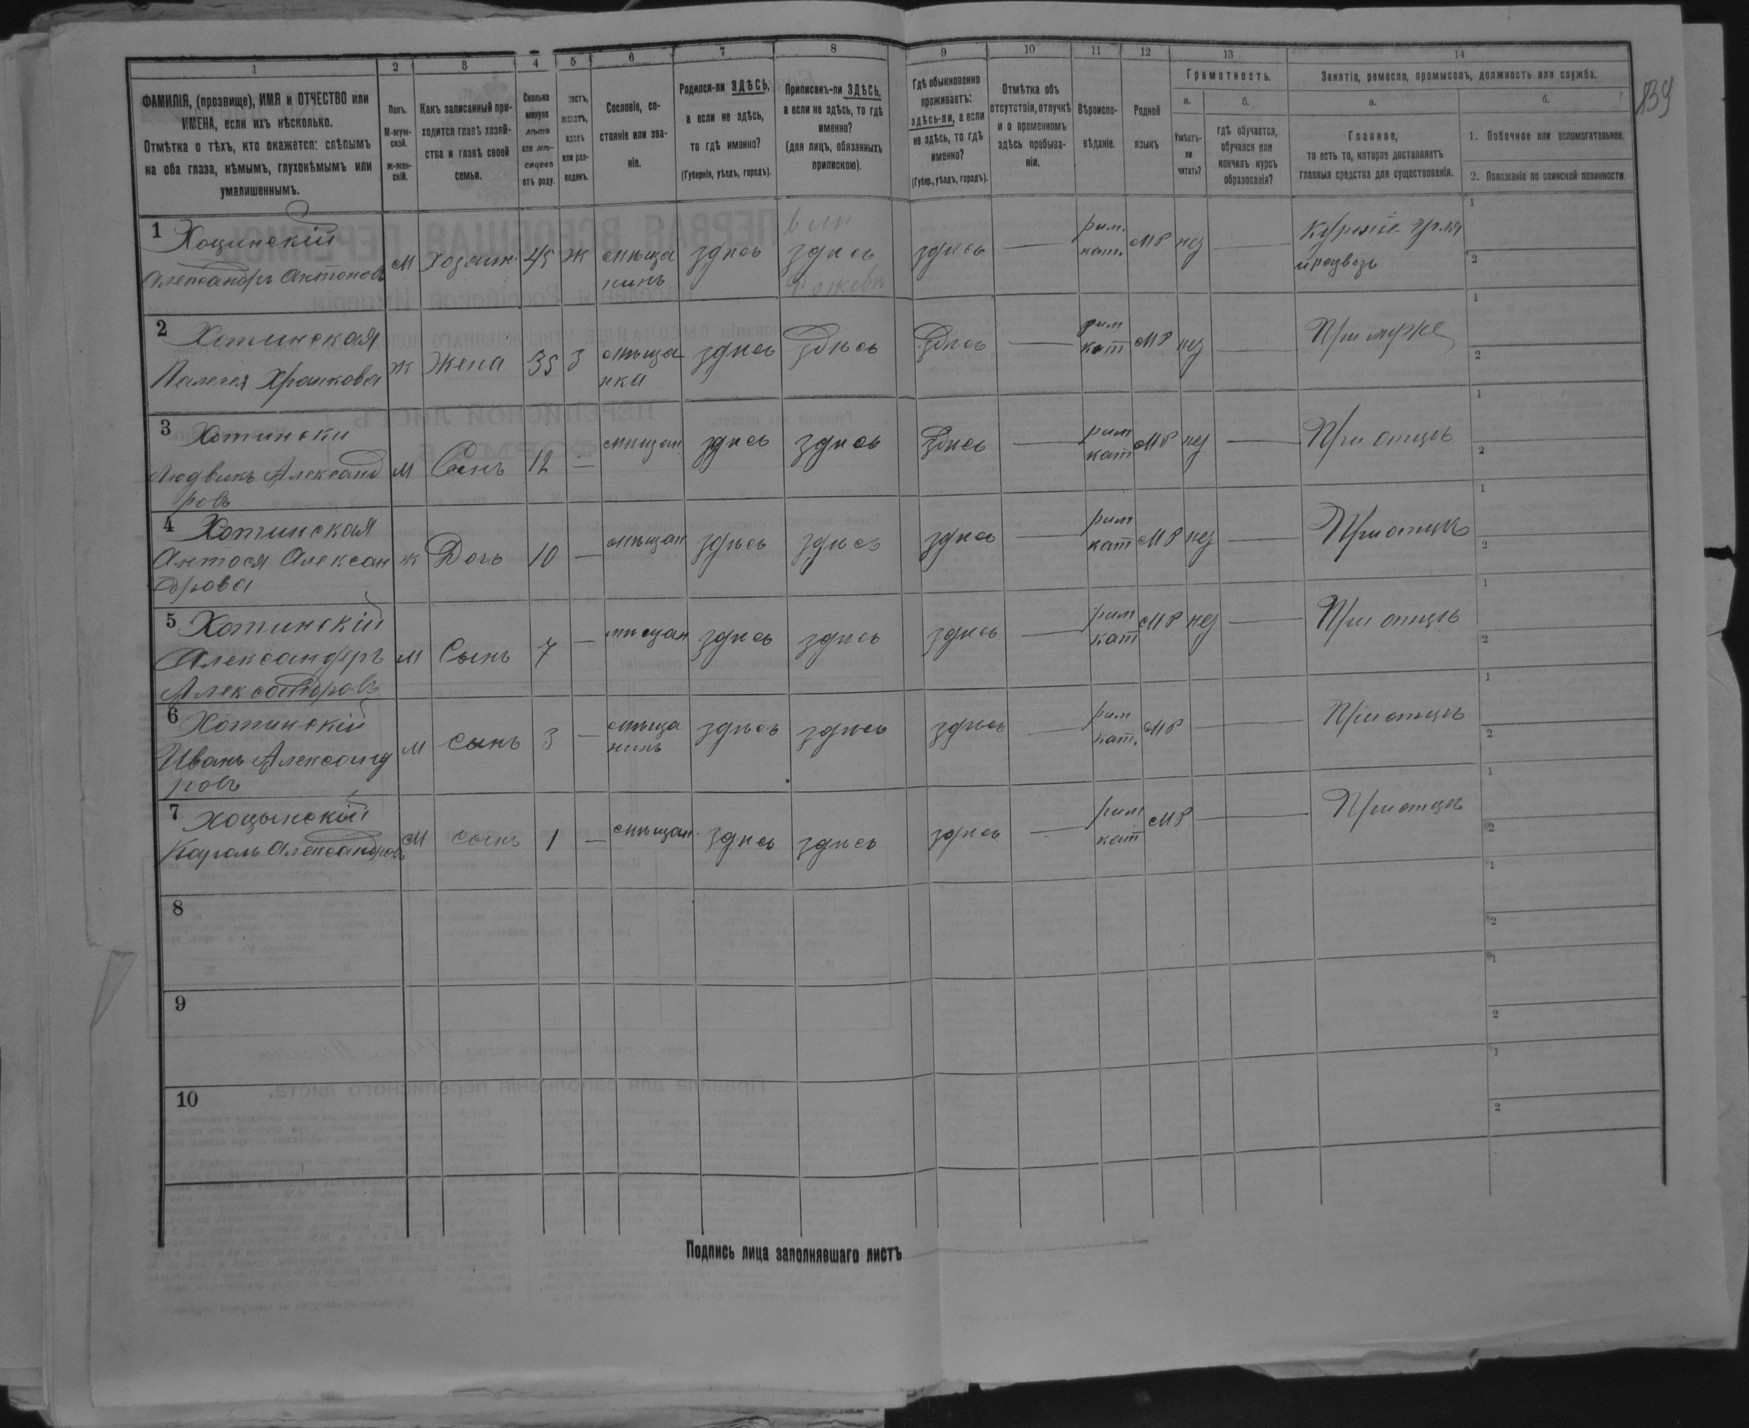 1 2 3 4 5 6 7 8 9 10 11 12 13 14
ФАМИЛІЯ, (прозвище), ИМЯ и ОТЧЕСТВО или
ИМЕНА, если ихъ нѣсколько.
Отмѣтка о тѣхъ, кто окажется: слѣпымъ
на оба глаза, нѣмымъ, глухонѣмымъ или
умалишеннымъ.
Полъ.
М-муж-
ской.
Ж-жен-
скій.
Какъ записанный при-
ходится главѣ хозяй-
ства и главѣ своей
семьи.
Сколько
минуло
лѣтъ
или мѣ-
сяцевъ
отъ роду.
Сословіе, со-
стояніе или зва-
ніе.
Родился-ли ЗДѢСЬ,
а если не здѣсь,
то гдѣ именно?
(Губернія, уѣздъ, городъ).
Приписанъ-ли ЗДѢСЬ,
а если не здѣсь, то гдѣ
именно?
(для лицъ, обязанныхъ
припискою).
Гдѣ обыкновенно
проживаетъ:
здѣсь-ли, а если
не здѣсь, то гдѣ
именно?
(Губер., уѣздъ, городъ).
Отмѣтка объ
отсутствіи, отлучкѣ
и о временномъ
здѣсь пребыва-
ніи.
Вѣроиспо-
вѣданіе.
Родной
языкъ
Грамотность.
а.
Умѣетъ-
ли
читать?
б.
гдѣ обучается,
обучался или
кончилъ курсъ
образованія?
Занятіе, ремесло, промыселъ, должность или служба.
а.
Главное,
то есть то, которое доставляетъ
главныя средства для существованія.
б.
1. Побочное или вспомогательное.
2. Положеніе по воинской повинности
139
1 Хоцинскій
Александръ Антоновъ м хозяинъ 45 ж мѣща
нинъ здѣсь здѣсь здѣсь — рим.
кат. мр нѣ —
2 Хотинская
Пелегея ж Жена 35 з мѣща
нка здѣсь Здѣсь Здѣсь — рим
кат мр нѣ — При мужѣ
3 Хотински
Людвикъ Александ
ровъ м Сынъ 12 — мѣщан здѣсь здѣсь Здѣсь — рим
кат мр нѣ — При отцѣ
4 Хотинская
Антося Алексан
дрова ж Дочь 10 — мѣщан здѣсь здѣсь здѣсь — рим
кат мр нѣ — При отцѣ
5 Хотинскій
Александръ
Александровъ м Сынъ 7 — мѣщан здѣсь здѣсь здѣсь — рим
кат мр нѣ — При отцѣ
6 Хотинскій
Иванъ Александ
ровъ м сынъ 3 — мѣща
нинъ здѣсь здѣсь здѣсь — рим
кат. мр — При отцѣ
7 Хоцынскій
Кароль Александровъ м сынъ 1 — мѣщан. здѣсь здѣсь здѣсь — рим
кат мр — При отцѣ
8
9
10
Подпись лица заполнявшаго листъ